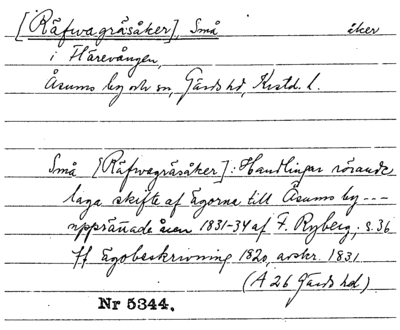 [Räfwagräsåker], Små åker
i Härevången,
Åsums by och sn, Gärds hd, Krstd. l.
Små [Räfwagräsåker]: Handlingar rörande
laga skifte af Egorna till Åsums by ---
upprättade åren 1831-34 af F. Ryberg, s. 36
ff Egobeskrivning 1820, avskr. 1831
(A 26 Gärds hd)
Nr 5344.